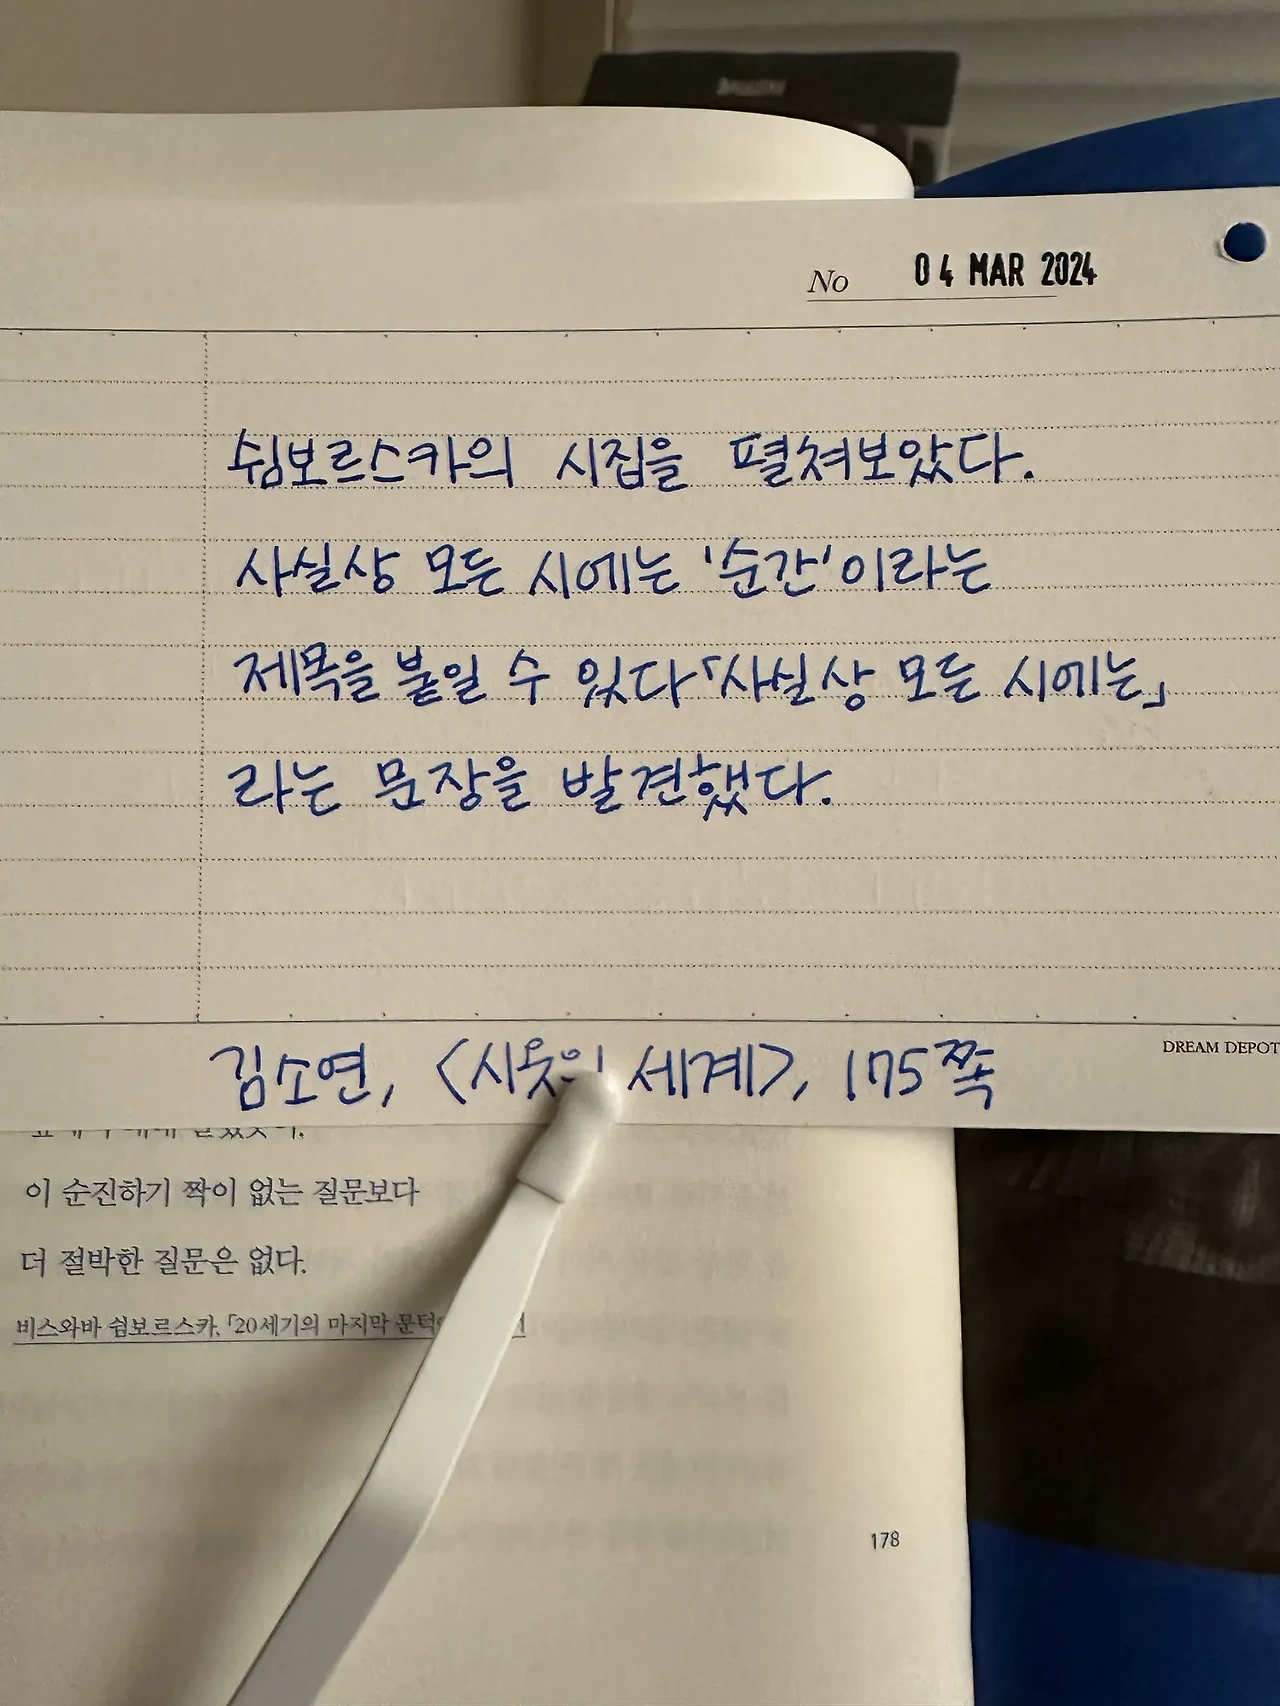 No 04 MAR 2024
쉼보르스카의 시집을 펼쳐보았다.
사실상 모든 시에는 '순간'이라는
제목을 붙일 수 있다「사실상 모든 시에는」
라는 문장을 발견했다.
김소연, <시옷의 세계>, 175쪽
DREAM DEPOT
이 순진하기 짝이 없는 질문보다
더 절박한 질문은 없다.
비스와바 쉼보르스카, 「20세기의 마지막 문턱
178